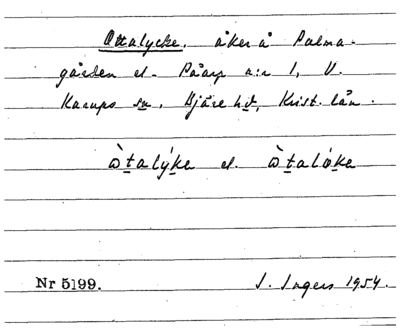 Ottalycke, åker å Palma-
gården el. Påarp n:r 1, V.
Karups sn, Bjäre hd, Krist. län.
òtalýke el. òtaløke
Nr 5199. J. Ingers 1954.